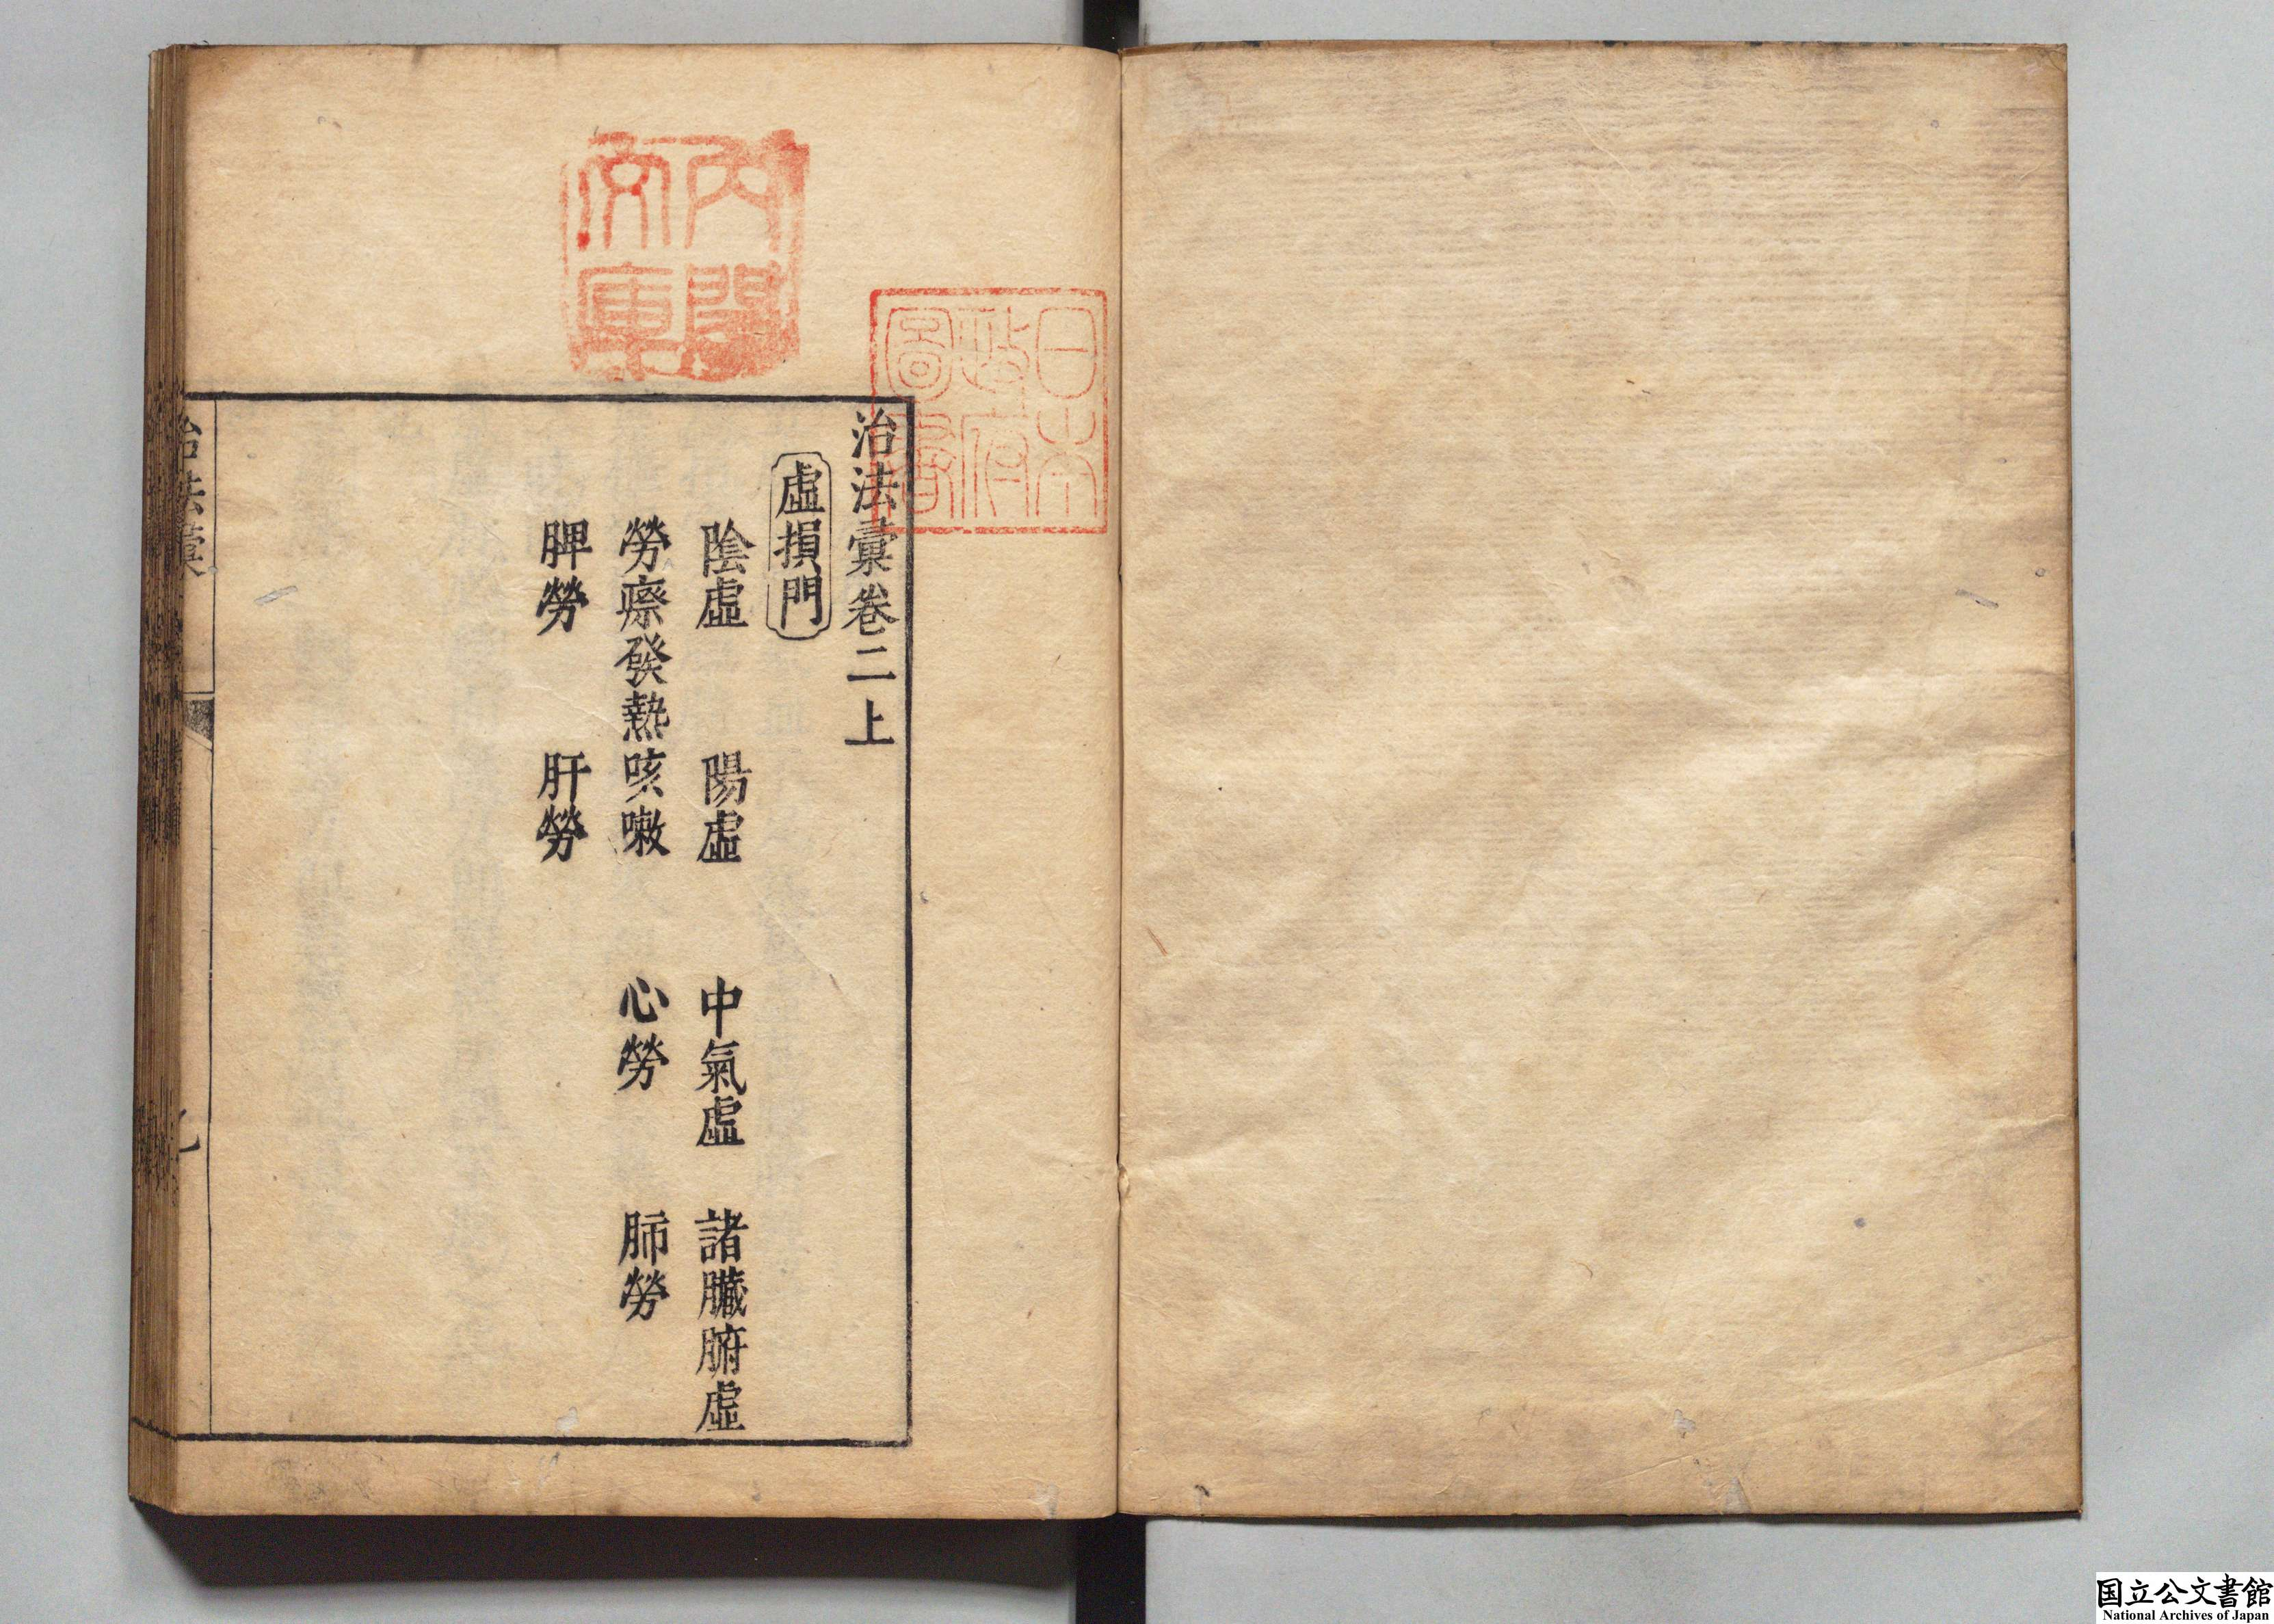 治法彙卷二上
虛損門
陰虛　陽虛　中氣虛　諸臟腑虛
勞瘵發熱咳嗽　心勞　肺勞
脾勞　肝勞
治法彙
日本
政府
圖書
內閣
文庫
国立公文書館
National Archives of Japan